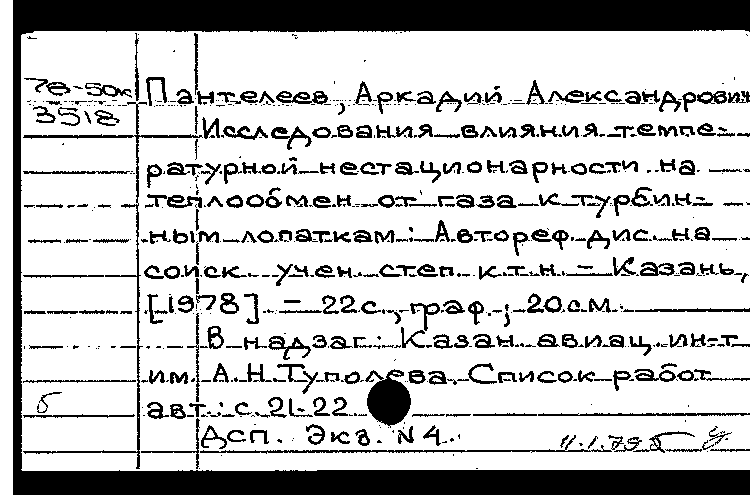 78-50к
3518
Пантелеев, Аркадий Александрович
Исследования влияния темпе-
ратурной нестационарности на
теплообмен от газа к турбин-
ным лопаткам: Автореф. дис. на
соиск. учен. степ. к.т.н. - Казань,
[1978] - 22с., граф.; 20см.
В надзаг: Казан. авиац. ин-т
им. А.Н.Туполева. Список работ
б
авт.: с. 21-22
Дсп. Экз. N4.
11.1.79